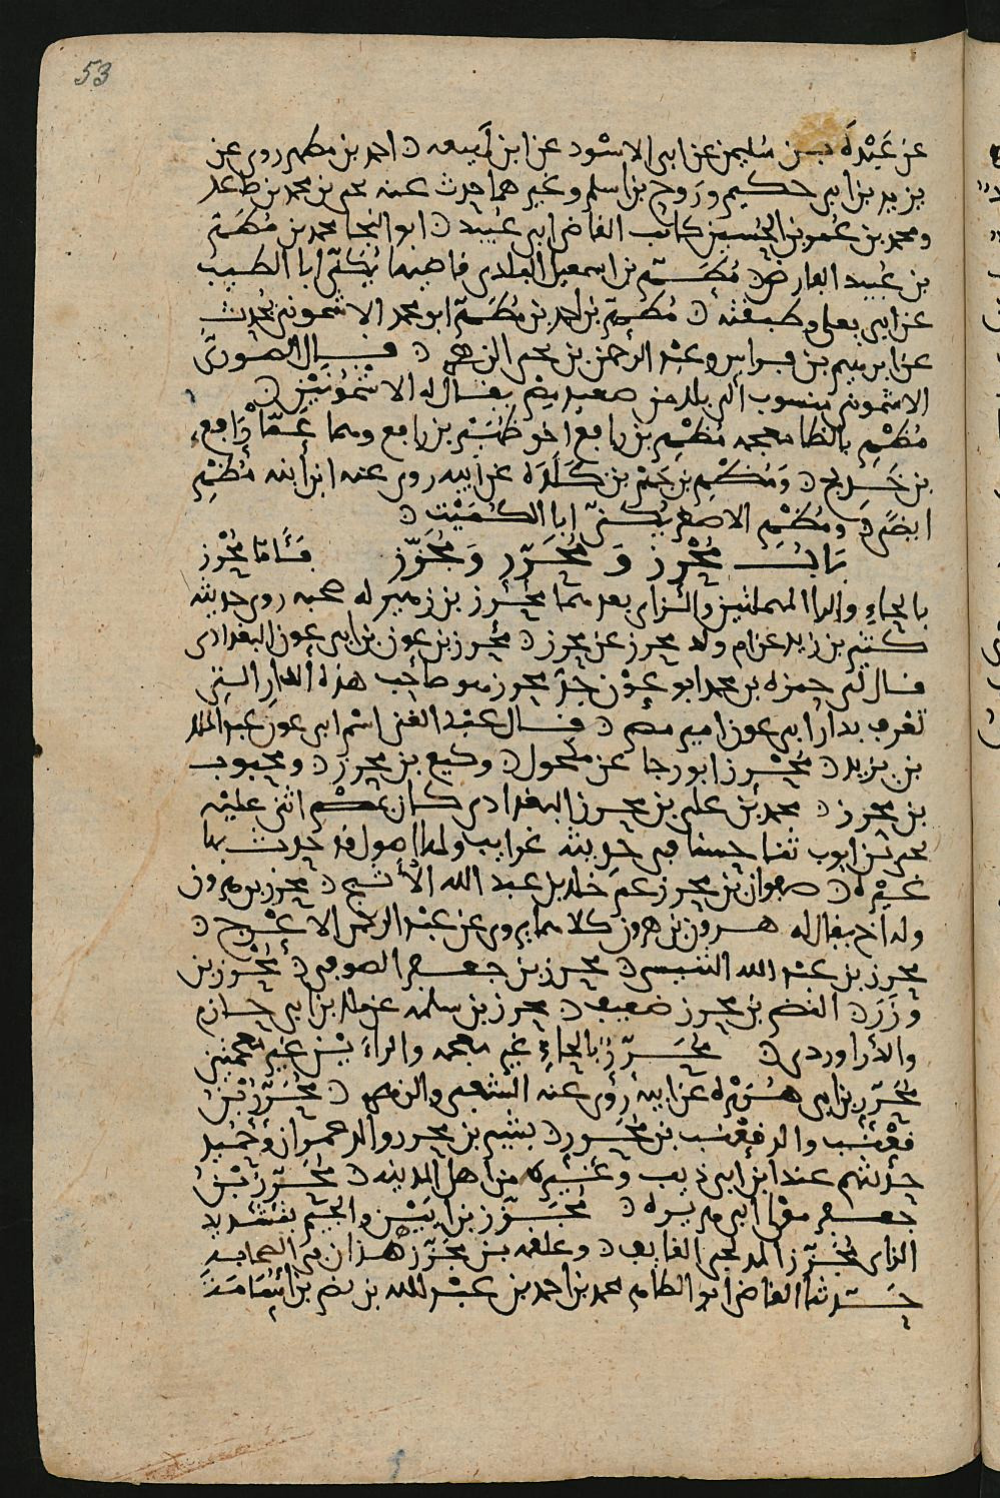 53
عن عَبْدَةَ بن سليمن عن ابي الاسود عن ابن لَهيعه ۞ احمد بن مطهر روى عن
يزيد بن ابي حكيم وروح بن اسلم وغيرهما حدث عنه محمد بن صاعد
ومحمد بن عمرو بن الحسين كاتب القاضي ابي عُبيد ۞ ابو النجا محمد بن مُطَهَّر
بن عُبيد الفارض ۞ مُطَهَّر بن اسمعيل قاضيها يُكَنّى ابا الطيب
عن ابي يعلى وطبقته ۞ مُطَهَّر بن احمد بن مُطَهَّر ابو محمد الاشمونى يحدث
عن ابرهيم بن فراس وعبد الرحمن بن الزهري ۞ قال الصورى
الاشمونى منسوب الى بلد من صعيد مصر يقال له الاشمونين ۞
مُظْهِر بالظا معجمه مُظْهِر بن رافع اخو ظُهَيْر بن رافع وهما عَمّا رَافع
بن خَديج ۞ ومُظْهِر بن جَهْم بن كَلَدَة عن ابيه روى عنه ابن ابنه مُظْهِر
ايضًا ومُظْهِر الاصغر يُكنّى ابا الكُمَيْت ۞
بَابُ مُحْرِز وَ مُحَرَّر وَ مُجَزِّز فَأَمّا مُحْرِز
بالحاءِ والرا المهملتين والزاى بعدهما مُحْرِز بن زهير له صحبه روى حديثه
كثير بن زيد عن ام ولد محرز عن محرز ۞ مُحْرِز بن عون بن ابي عون البغدادى
قال لى حمزه بن محمد ابو عَوْن جدّ محرز هو صاحب هذه الدار التى
تعرف بدار ابي عون امير مصر ۞ قال عبد الغنى اسم ابي عون عبد الملك
بن يزيد ۞ مُحْرِز ابو رجا عن مكحول ۞ وكيع بن محرز ۞ ومحبوب
بن محرز ۞ محمد بن علي بن محرز البغدادى كان بمصر اثنى عليه
محمد بن ايوب ثنا حسنا في حديثه غرايب ولها اصول قد حدث بها
غيره ۞ صفوان بن محرز عم خالد بن عبد الله الأثبج ۞ محرز بن هرون
وله اخ يقال له هرون بن هرون كلاهما يروى عن عبد الرحمن الاعرج ۞
محرز بن عبد الله التنيسى ۞ محرز بن جعفر الصوفى ۞ مُحْرِز بن
وَزَر ۞ الفضر بن محرز ضعيف ۞ محرز بن سلمه عن ابن ابي حازم
والدراوردى ۞ مُحَرَّرٌ بالحاءِ غير معجمه والراءَ يْن غير معجمتين
مُحَرَّر بن ابي هُرَيْرَة عن ابيه روى عنه الشعبى والزهرى ۞ مُحَرَّر بن
قَعْنَب والد قعنب بن مُحَرَّر ۞ بشير بن محرر والد حمران وحُميد
حدثهم عند ابن ابي ذيب وغَيْره من اهل المدينه ۞ مُحَرَّر بن
جعفر مولى ابي هريره ۞ مُجَزِّز بزايَيْن والجيم بتشديد
الزاى مُجَزِّز المدلجى القايف ۞ وعلقمه بن مُجَزِّز هذان في الصحابه
حَدّثنا القاضى ابو الطاهر محمد بن احمد بن عبد الله بن نصر بن